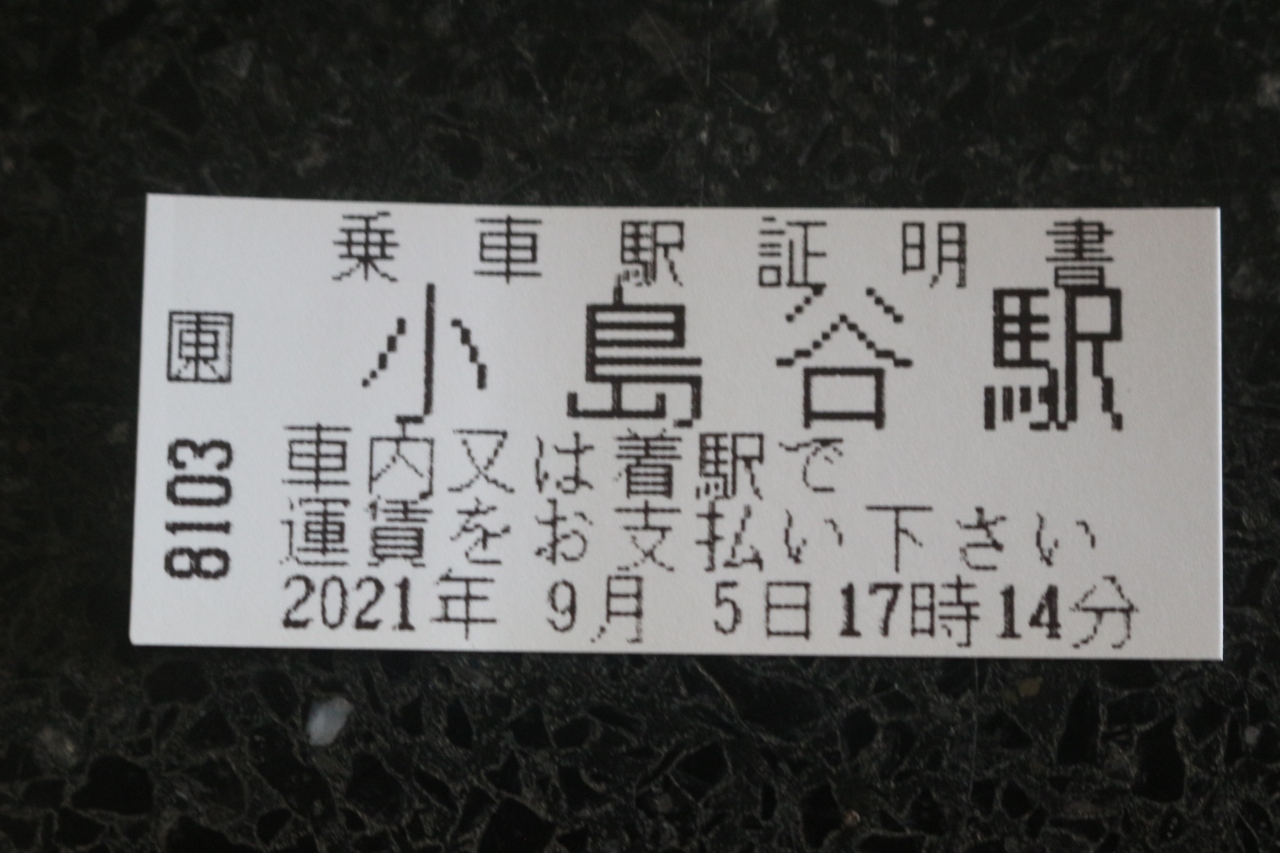 乗車駅証明書
小島谷駅
東
8103
車内又は着駅で
運賃をお支払い下さい
2021年 9月 5日17時14分